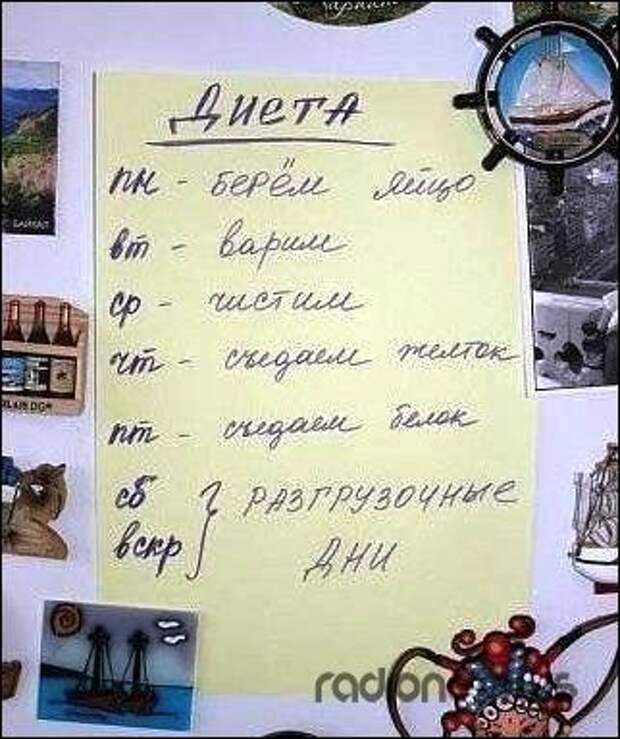 ДИЕТА
пн - берём яйцо
вт - варим
ср - чистим
чт - съедаем желток
пт - съедаем белок
сб } РАЗГРУЗОЧНЫЕ
вскр } ДНИ